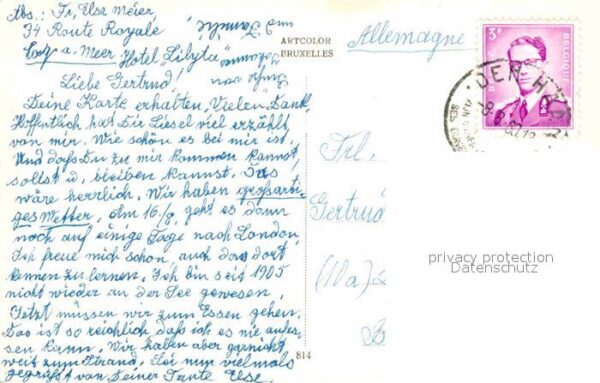 Abs: Fr. Else Meier,
34 Route Royale
a. Meer Hotel Lilyta"
Liebe Gertrud!
Deine Karte erhalten, Vielen Dank,
Hoffentlich hat Dir Liesel viel erzählt,
von mir. Wie schön es bei mir ist.
Und dass Du zu mir kommen kannst,
sollst u. bleiben kannst. Das
wäre herrlich. Wir haben grossarti-
ges Wetter, Am 16./8. geht es dann
noch auf einige Tage nach London,
Ich freue mich schon, auch das dort
kennen zu lernen. Ich bin seit 1905
nicht wieder an der See gewesen,
Jetzt müssen wir zum Essen gehen.
Das ist so reichlich, daß ich es nie aufes-
sen kann. Wir haben aber garnicht
weit zum Strand. Sei nun vielmals
gegrüßt von Deiner Tante Else
und Familie.
814
ARTCOLOR
BRUXELLES
Allemagne
3F
BELGIQUE
DEN HAAN
Frl.
Gertrud
privacy protection
Datenschutz